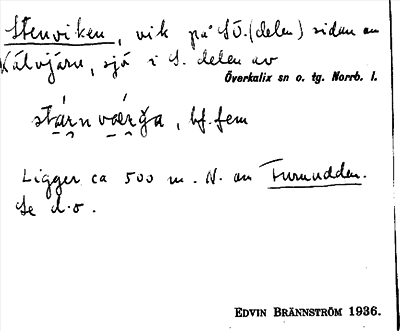 Stenviken, vik på SÖ. (delen) sidan av
Kälvjärv, sjö i S. delen av
Överkalix sn o. tg. Norrb. l.
bf. fem
Ligger ca 500 m. N. om Furuudden.
Se d.o.
EDVIN BRÄNNSTRÖM 1936.